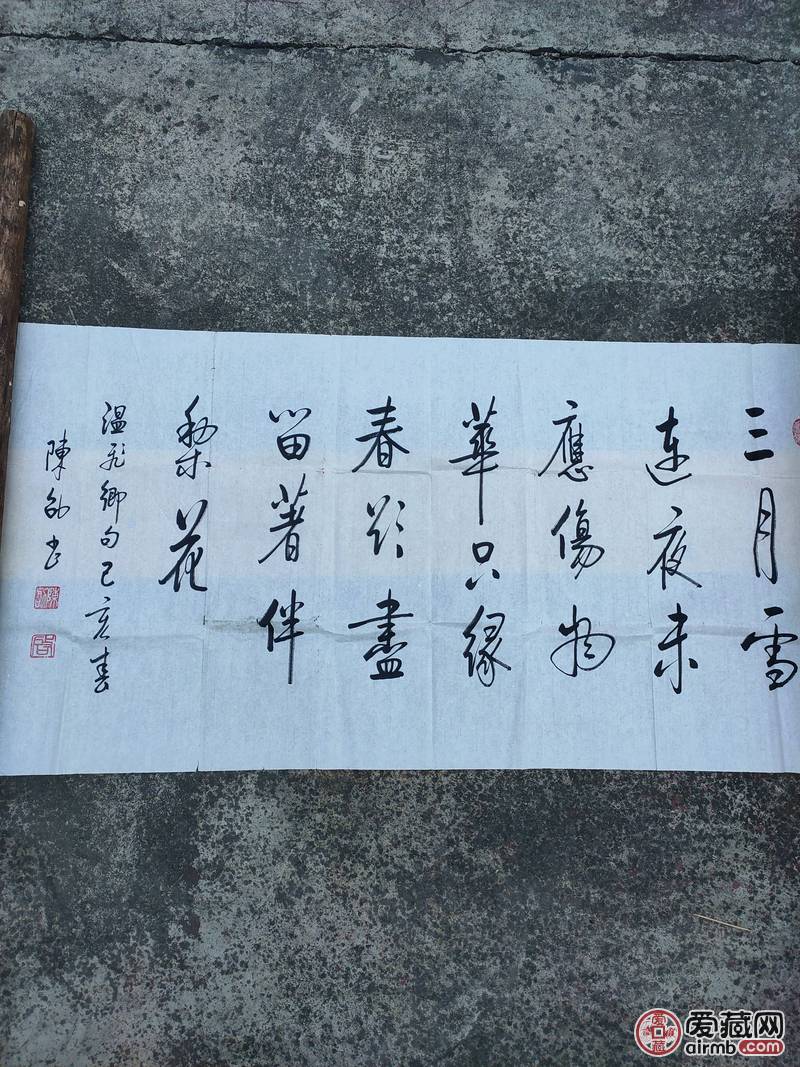 三月雪
連夜未
應傷物
華只緣
春欲盡
留著伴
梨花
温飛卿句己亥春
陳劭書
爱藏网
airmb.com